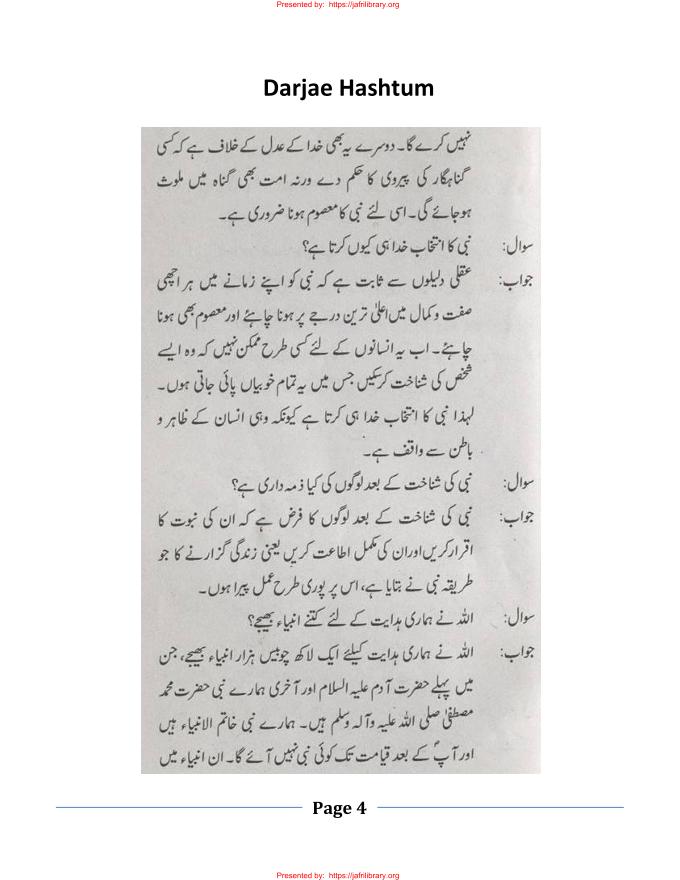 Presented by: https://jafrilibrary.org
Darjae Hashtum
نہیں کرے گا۔ دوسرے یہ بھی خدا کے عدل کے خلاف ہے کہ کسی
گناہگار کی پیروی کا حکم دے ورنہ امت بھی گناہ میں ملوث
ہوجائے گی۔ اسی لئے نبی کا معصوم ہونا ضروری ہے۔
سوال: نبی کا انتخاب خدا ہی کیوں کرتا ہے؟
جواب: عقلی دلیلوں سے ثابت ہے کہ نبی کو اپنے زمانے میں ہر اچھی
صفت و کمال میں اعلیٰ ترین درجے پر ہونا چاہئے اور معصوم بھی ہونا
چاہئے۔ اب یہ انسانوں کے لئے کسی طرح ممکن نہیں کہ وہ ایسے
شخص کی شناخت کرسکیں جس میں یہ تمام خوبیاں پائی جاتی ہوں۔
لہذا نبی کا انتخاب خدا ہی کرتا ہے کیونکہ وہی انسان کے ظاہر و
باطن سے واقف ہے۔
سوال: نبی کی شناخت کے بعد لوگوں کی کیا ذمہ داری ہے؟
جواب: نبی کی شناخت کے بعد لوگوں کا فرض ہے کہ ان کی نبوت کا
اقرار کریں اور ان کی مکمل اطاعت کریں یعنی زندگی گزارنے کا جو
طریقہ نبی نے بتایا ہے، اس پر پوری طرح عمل پیرا ہوں۔
سوال: اللہ نے ہماری ہدایت کے لئے کتنے انبیاء بھیجے؟
جواب: اللہ نے ہماری ہدایت کیلئے ایک لاکھ چوبیس ہزار انبیاء بھیجے، جن
میں پہلے حضرت آدم علیہ السلام اور آخری ہمارے نبی حضرت محمد
مصطفیٰ صلی اللہ علیہ وآلہ وسلم ہیں۔ ہمارے نبی خاتم الانبیاء ہیں
اور آپؐ کے بعد قیامت تک کوئی نبی نہیں آئے گا۔ ان انبیاء میں
Page 4
Presented by: https://jafrilibrary.org